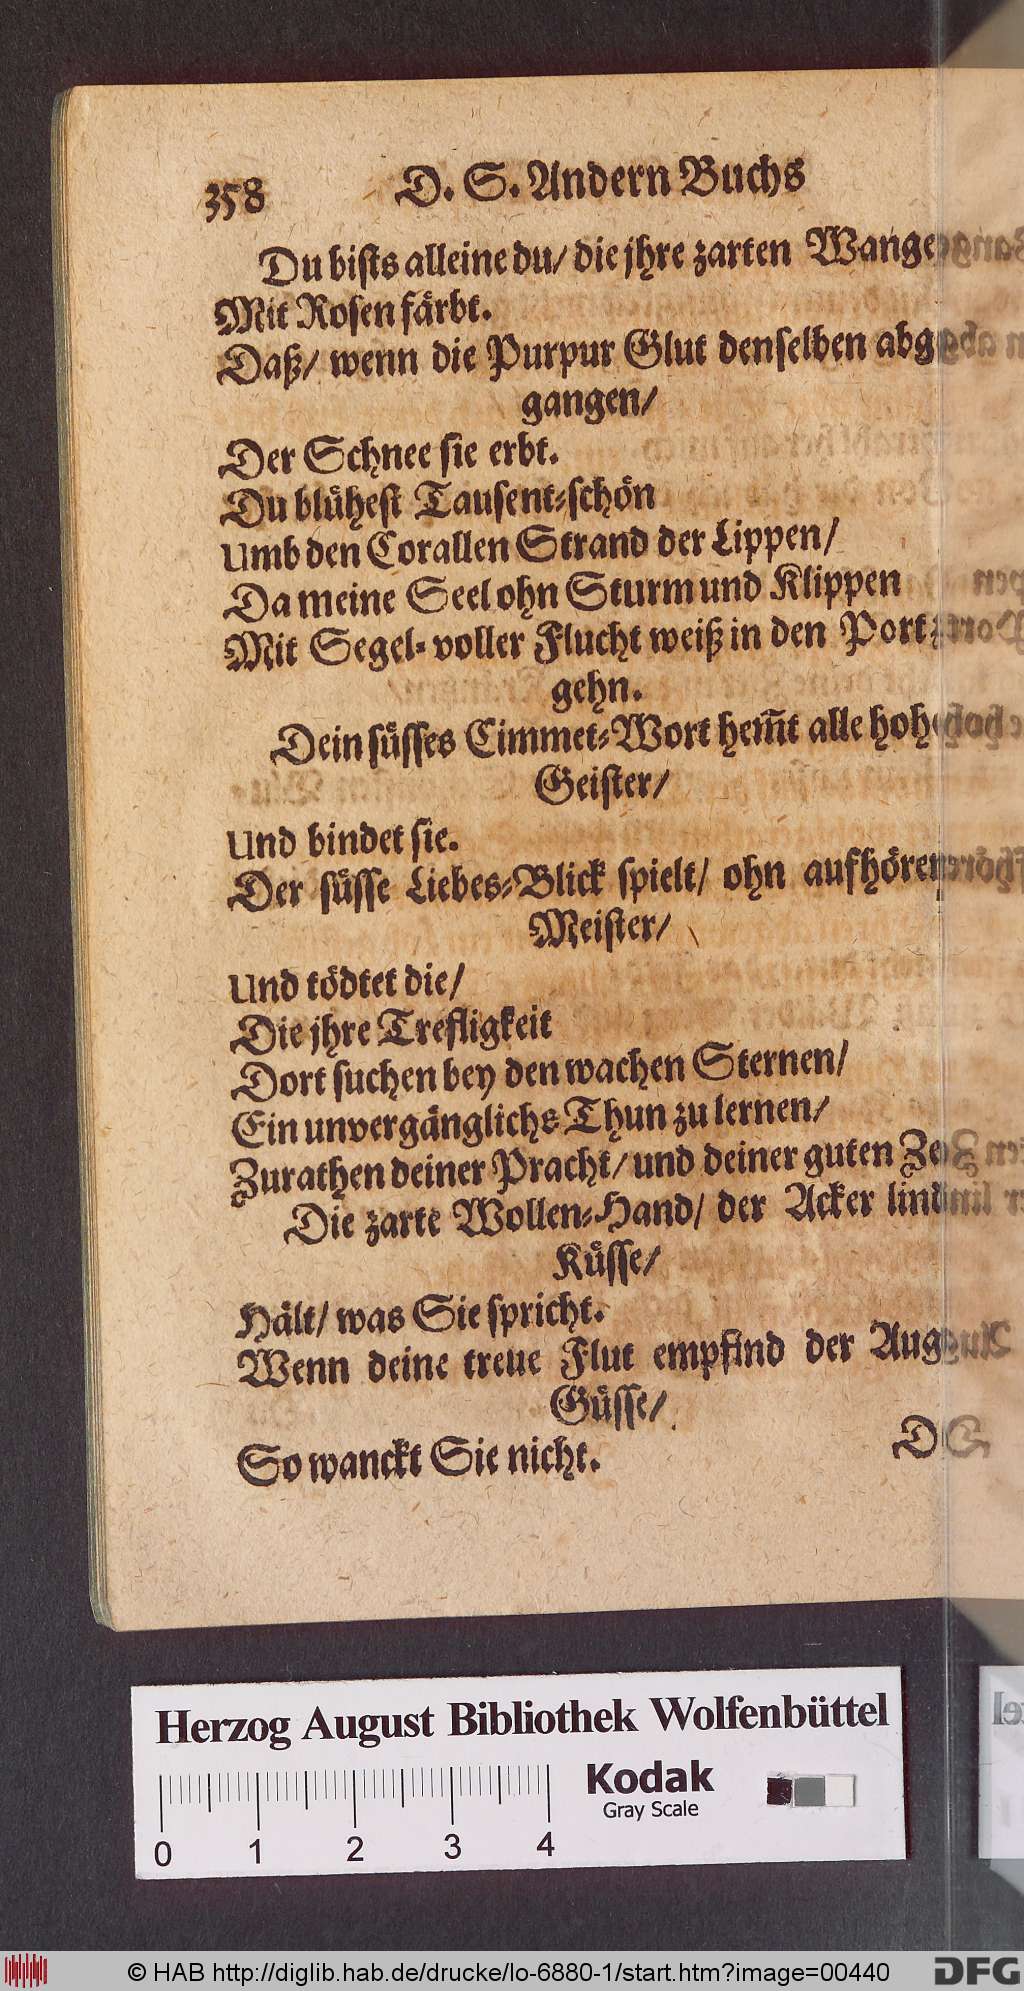 358 D. S. Andern Buchs
Du bists alleine du/ die jhre zarten Wange
Mit Rosen färbt.
Daß/ wenn die Purpur Glut denselben abg
gangen/
Der Schnee sie erbt.
Du blühest Tausent-schön
Umb den Corallen Strand der Lippen/
Da meine Seel ohn Sturm und Klippen
Mit Segel-voller Flucht weiß in den Port
gehn.
Dein süsses Cimmet-Wort hem̃t alle hoh
Geister/
Und bindet sie.
Der süsse Liebes-Blick spielt/ ohn aufhören
Meister/
Und tödtet die/
Die jhre Trefligkeit
Dort suchen bey den wachen Sternen/
Ein unvergänglichs Thun zu lernen/
Zurathen deiner Pracht/ und deiner guten Ze
Die zarte Wollen-Hand/ der Acker lin
Küsse/
Hält/ was Sie spricht.
Wenn deine treue Flut empfind der Aug
Güsse/
So wanckt Sie nicht.
D
Herzog August Bibliothek Wolfenbüttel
Kodak
Gray Scale
0 1 2 3 4
© HAB http://diglib.hab.de/drucke/lo-6880-1/start.htm?image=00440
DFG